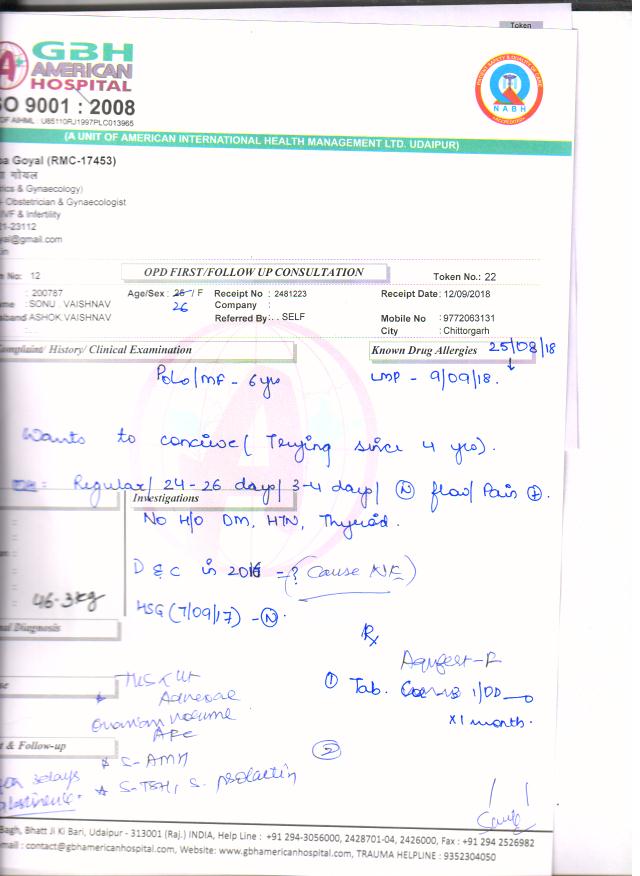 Token
GBH
AMERICAN
HOSPITAL
SO 9001 : 2008
OF AIHML : U85110RJ1997PLC013965
PATIENT SAFETY & QUALITY OF CARE
NABH
(A UNIT OF AMERICAN INTERNATIONAL HEALTH MANAGEMENT LTD. UDAIPUR)
a Goyal (RMC-17453)
गोयल
ics & Gynaecology)
- Obstetrician & Gynaecologist
IVF & Infertility
1-23112
yal@gmail.com
in
No: 12 OPD FIRST/FOLLOW UP CONSULTATION Token No.: 22
: 200787 Age/Sex : 25 / F Receipt No : 2481223 Receipt Date: 12/09/2018
26
ame : SONU . VAISHNAV Company :
sband ASHOK.VAISHNAV Referred By : . . SELF Mobile No : 9772063131
City : Chittorgarh
Complaint/ History/ Clinical Examination Known Drug Allergies 25/08/18
P0L0/MF - 6 yrs LMP - 9/09/18.
Wants to conceive ( Trying since 4 yrs).
Regular/ 24-26 days/ 3-4 days/ N flow/ Pain +.
Investigations
No H/O DM, HTN, Thyroid.
D & C in 2016 - ? (Cause NK)
46.3kg
HSG (7/09/17) - N.
al Diagnosis
Rx
① Tab. 1/OD
Adnexae
x 1 month.
Ovarian volume
AFC
t & Follow-up
②
* S-AMH
3days
* S-TSH, S. prolactin
abstinence.
Bagh, Bhatt Ji Ki Bari, Udaipur - 313001 (Raj.) INDIA, Help Line : +91 294-3056000, 2428701-04, 2426000, Fax : +91 294 2526982
mail : contact@gbhamericanhospital.com, Website: www.gbhamericanhospital.com, TRAUMA HELPLINE : 9352304050